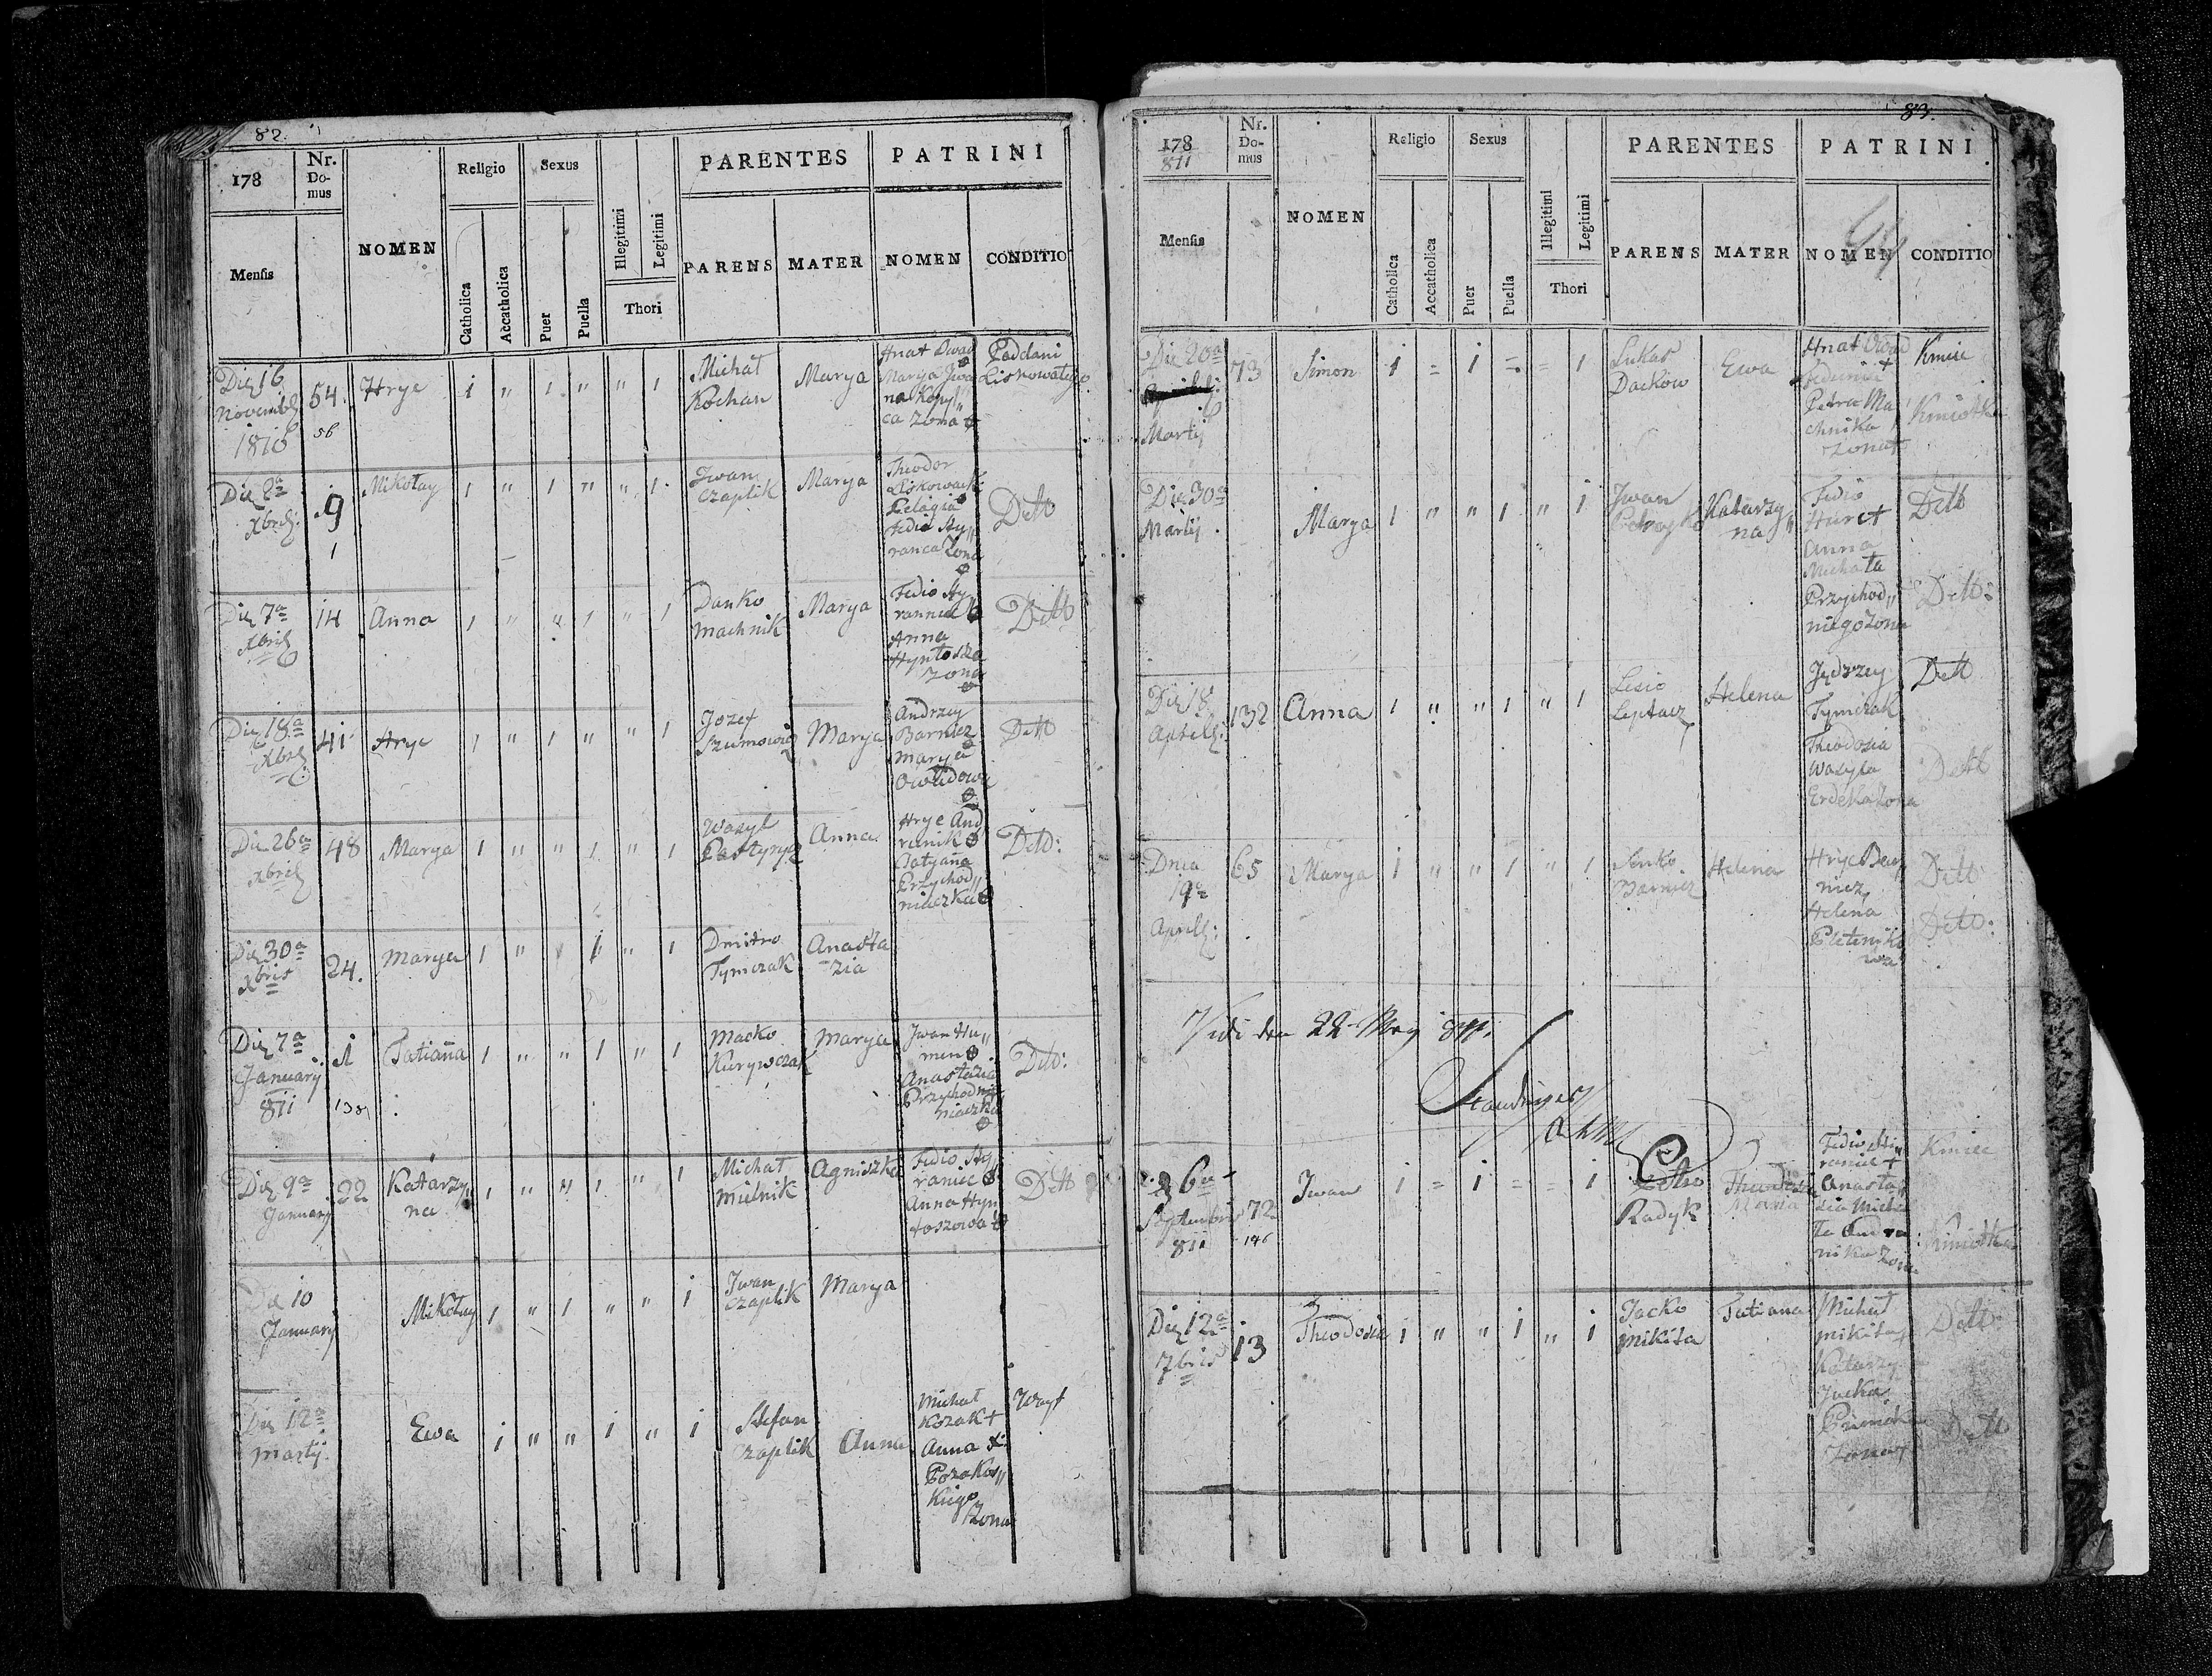 82.
178
Nr. Domus
Mensis
NOMEN
Religio
Catholica
Accatholica
Sexus
Puer
Puella
Illegitimi
Legitimi
Thori
PARENTES
PARENS
MATER
PATRINI
NOMEN
CONDITIO
Die 16 Novembr 1810 54. 56 Hryc 1 " 1 " " 1 Michał Kochan Marya Hnat Marya Iwana Kopyca Zona Poddani Liskowatego
Die 2a Xbris 9 1 Mikołay 1 " 1 " " 1 Iwan Czaplik Marya Theodor Liskowacki Pelagia Fedia Hyranca Zona Detto
Die 7a Xbris 14 Anna 1 " " 1 " 1 Danko Machnik Marya Fedio Anna Zona Detto
Die 18a Xbris 41 Hryc 1 " 1 " " 1 Jozef Szumowicz Marya Andrzey Barnicz Marya Detto
Die 26a Xbris 48 Marya 1 " " 1 " 1 Wasyl Pastyrycz Anna Hryc Andranik Tatyana Przychodniaczka Detto:
Die 30a Xbris 24. Marya 1 " " 1 " 1 Dmitro Tymczak Anastazia
Die 7a January 811 1 138 Tatiana 1 " " 1 " 1 Macko Kurywczak Marya Iwan Humen Anastazia Przychodniaczka Detto:
Die 9a January 22 Katarzyna 1 " " 1 " 1 Michał Milnik Agniszka Fedio Hyraniec Anna Hyntoszowa Detto
Die 10 January Mikołay 1 " 1 " " 1 Iwan Czaplik Marya
Die 12a Martij Ewa 1 " " 1 " 1 Stefan Czaplik Anna Michał Kozak + Anna Zona Woyt
83.
178
811
Nr. Domus
Mensis
NOMEN
Religio
Catholica
Accatholica
Sexus
Puer
Puella
Illegitimi
Legitimi
Thori
PARENTES
PARENS
MATER
PATRINI
NOMEN
CONDITIO
Die 20a Martij 73 Simon 1 = 1 = = 1 Lukas Dackow Ewa Hnat Petra Machnika Zona Kmiec Kmiotka
Die 30a Martij Marya 1 " " 1 " 1 Iwan Katarzyna Fedio Anna Michała Przychodniego Zona Detto Detto:
Die 18 Aprilis 132 Anna 1 " " 1 " 1 Lesio Leptacz Helena Jędrzey Tymczak Theodosia Wasyla Zona Detto Detto
Dnia 19a Aprilis: 65 Marya 1 " " 1 " 1 Senko Barnicz Helena Hryc Barnicz Helena Detto Detto:
Vidi den 22 May 811.
Die 6a Septembris 811 72 146 Iwan 1 = 1 = = 1 Petro Radyk Theodosia Maria Fedio Hiraniec + Anastasia Michała Andranika Zona Kmiec Kmiotka
Die 12a 7bris 13 Theodosia 1 " " 1 " 1 Jacko Mikita Tatiana Michał Mikita Jacka Zona Detto Detto